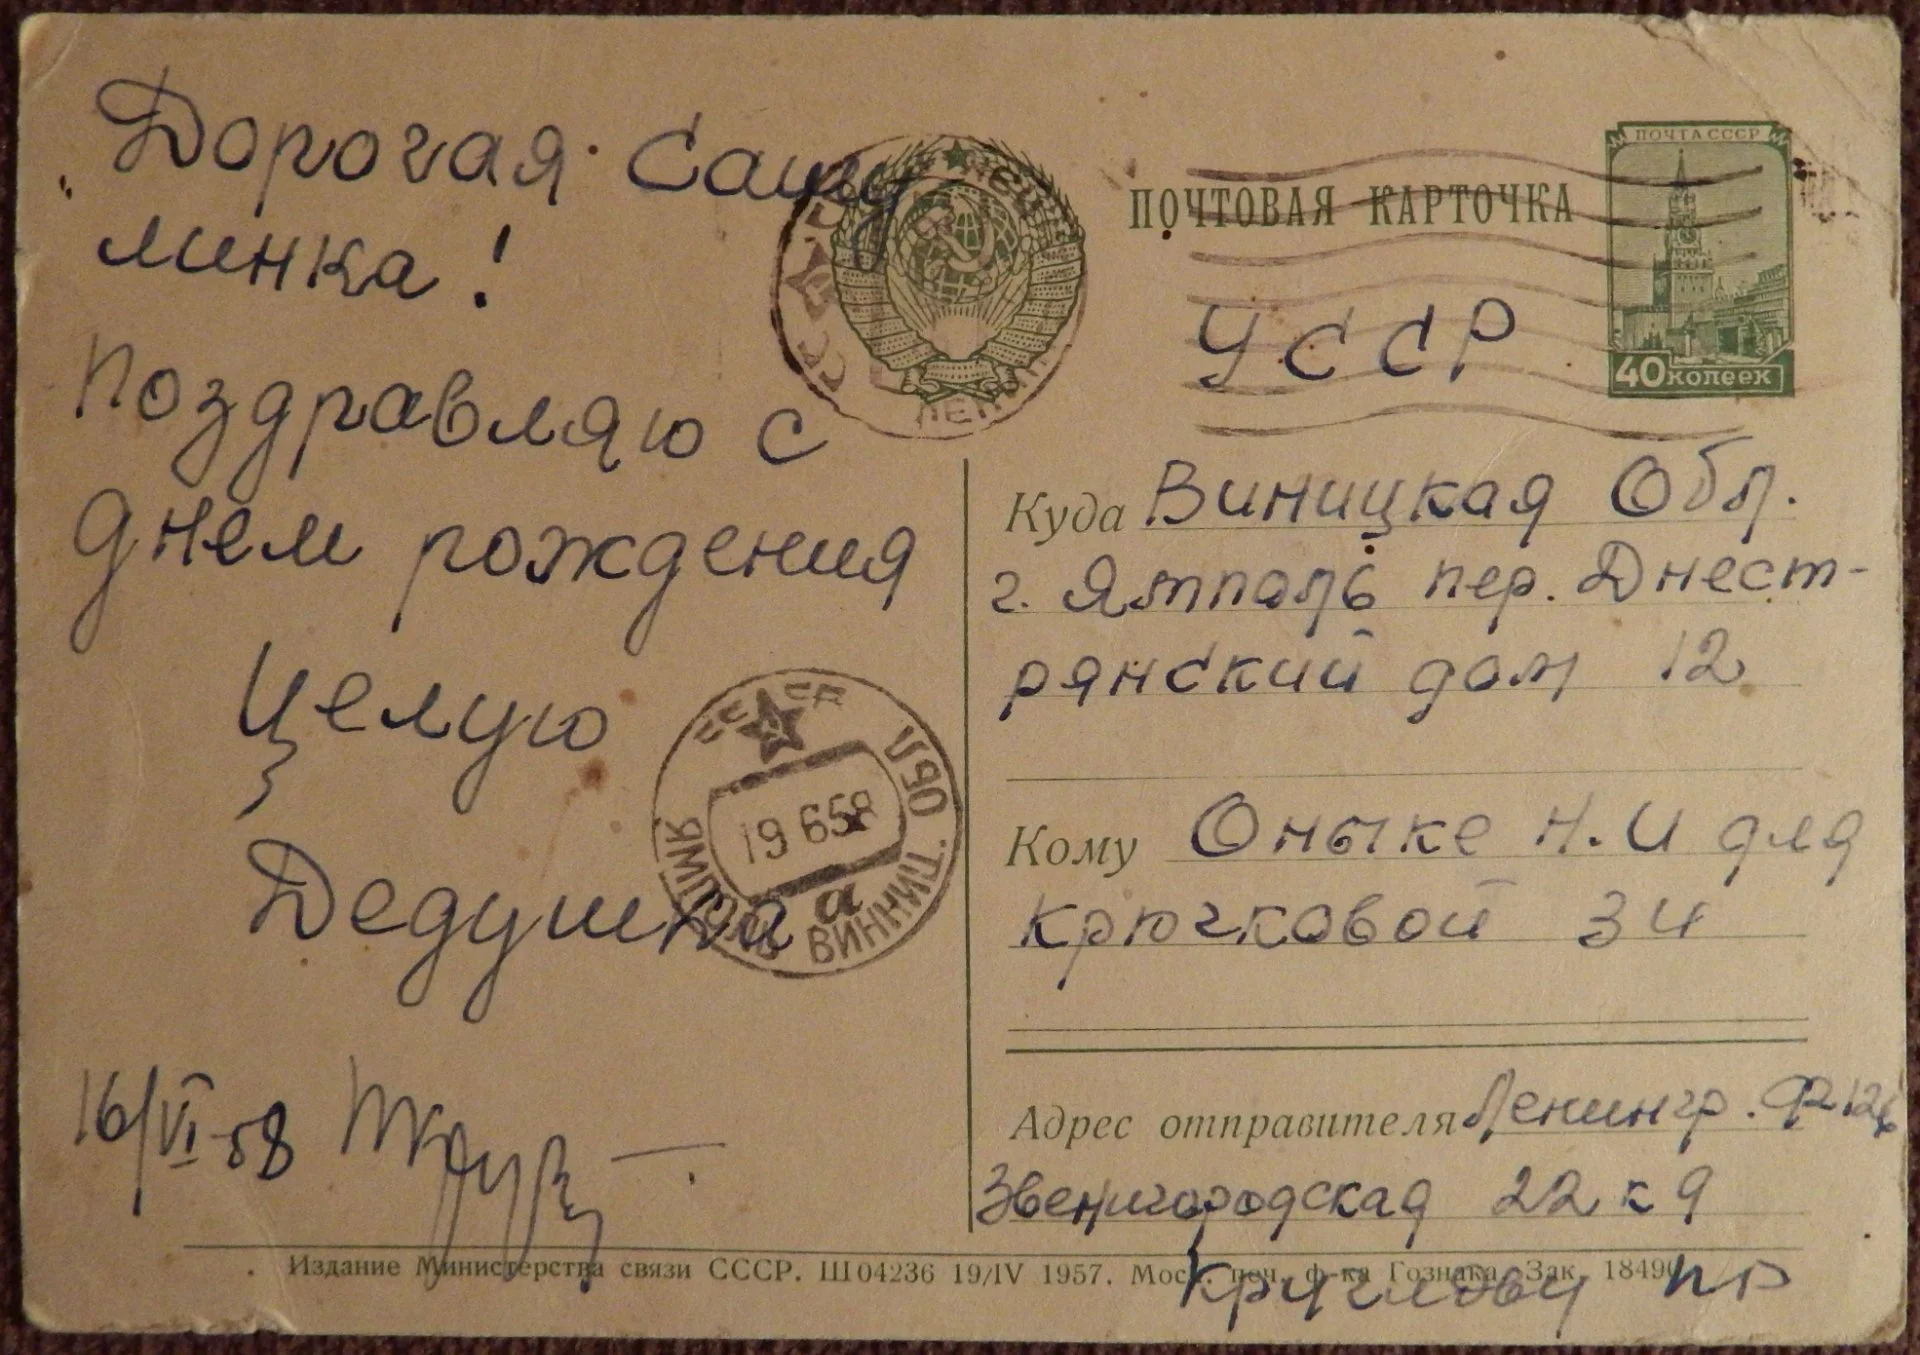 Дорогая Сашу
линка!
Поздравляю с
днем рождения
Целую
Дедушка
16/VI-58
ПОЧТА СССР
40 КОПЕЕК
ПОЧТОВАЯ КАРТОЧКА
УССР
Куда Виницкая Обл.
г. Ямполь пер. Днест-
рянский дом 12
Кому Оныке Н.И для
Крючковой З И
Адрес отправителя Ленингр. Ф-126
Звенигородская 22 к 9
Круглову ПГ
СССР
19 6 58
а
ВИННИЦ. ОБЛ
Издание Министерства связи СССР. Ш04236 19/IV 1957. Моск. печ. ф-ка Гознака. Зак. 18490